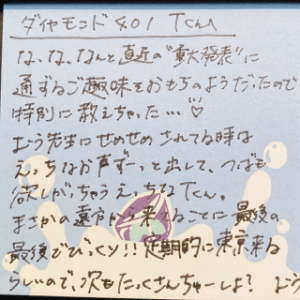 ダイヤモンド 401 Tくん
な、な、なんと直近の“重大発表”に
通ずるご趣味をおもちのようだったので
特別に教えちゃった…♡
よう先生にせめせめされてる時は
えっちなお声ずーっと出して、つばも
欲しがっちゃうえっちなTくん。
まさかの遠方から来てることに最後の
最後でびっくり!!定期的に東京来る
らしいので、次もたっくさんちゅーしよ? よう